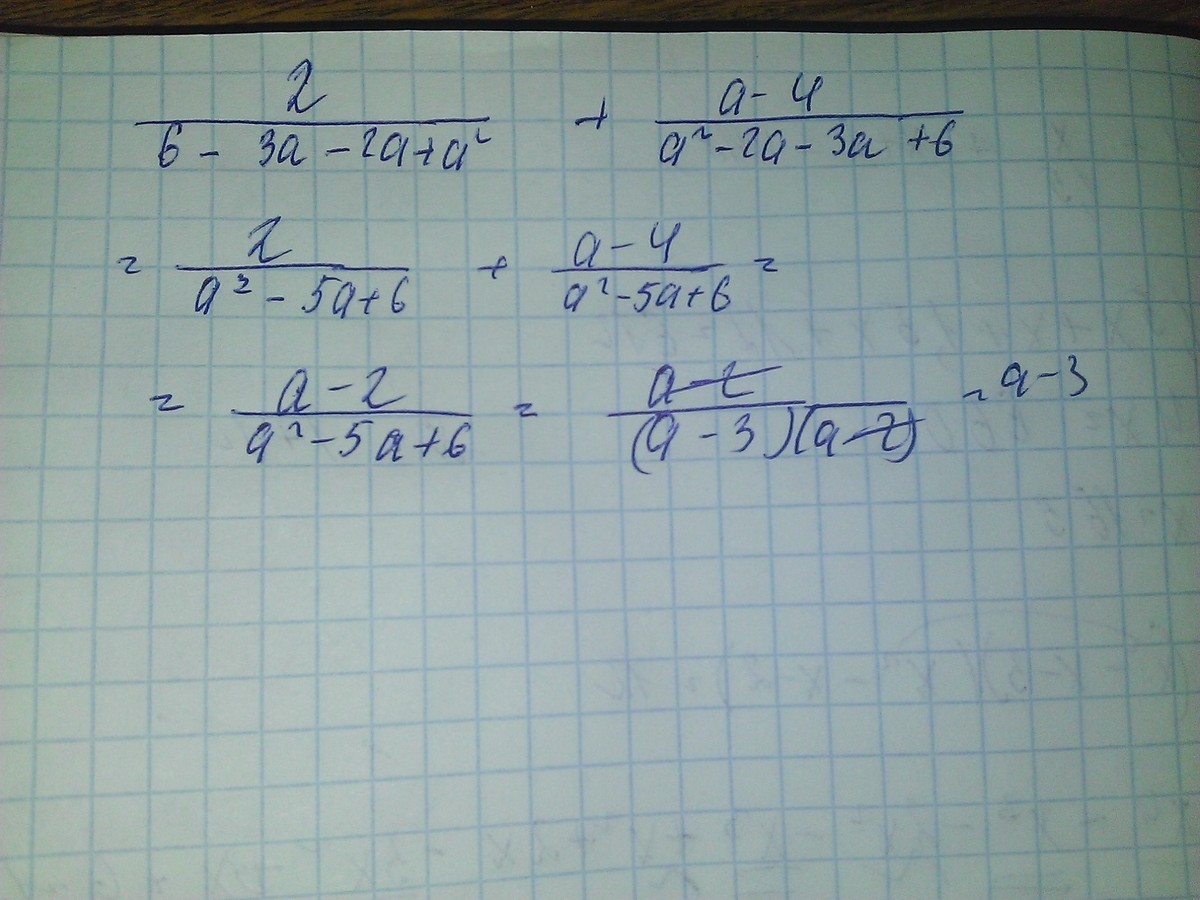 2/(6 - 3a - 2a + a²) + (a - 4)/(a² - 2a - 3a + 6)
= 2/(a² - 5a + 6) + (a - 4)/(a² - 5a + 6) =
= (a - 2)/(a² - 5a + 6) = (a - 2)/((a - 3)(a - 2)) = a - 3